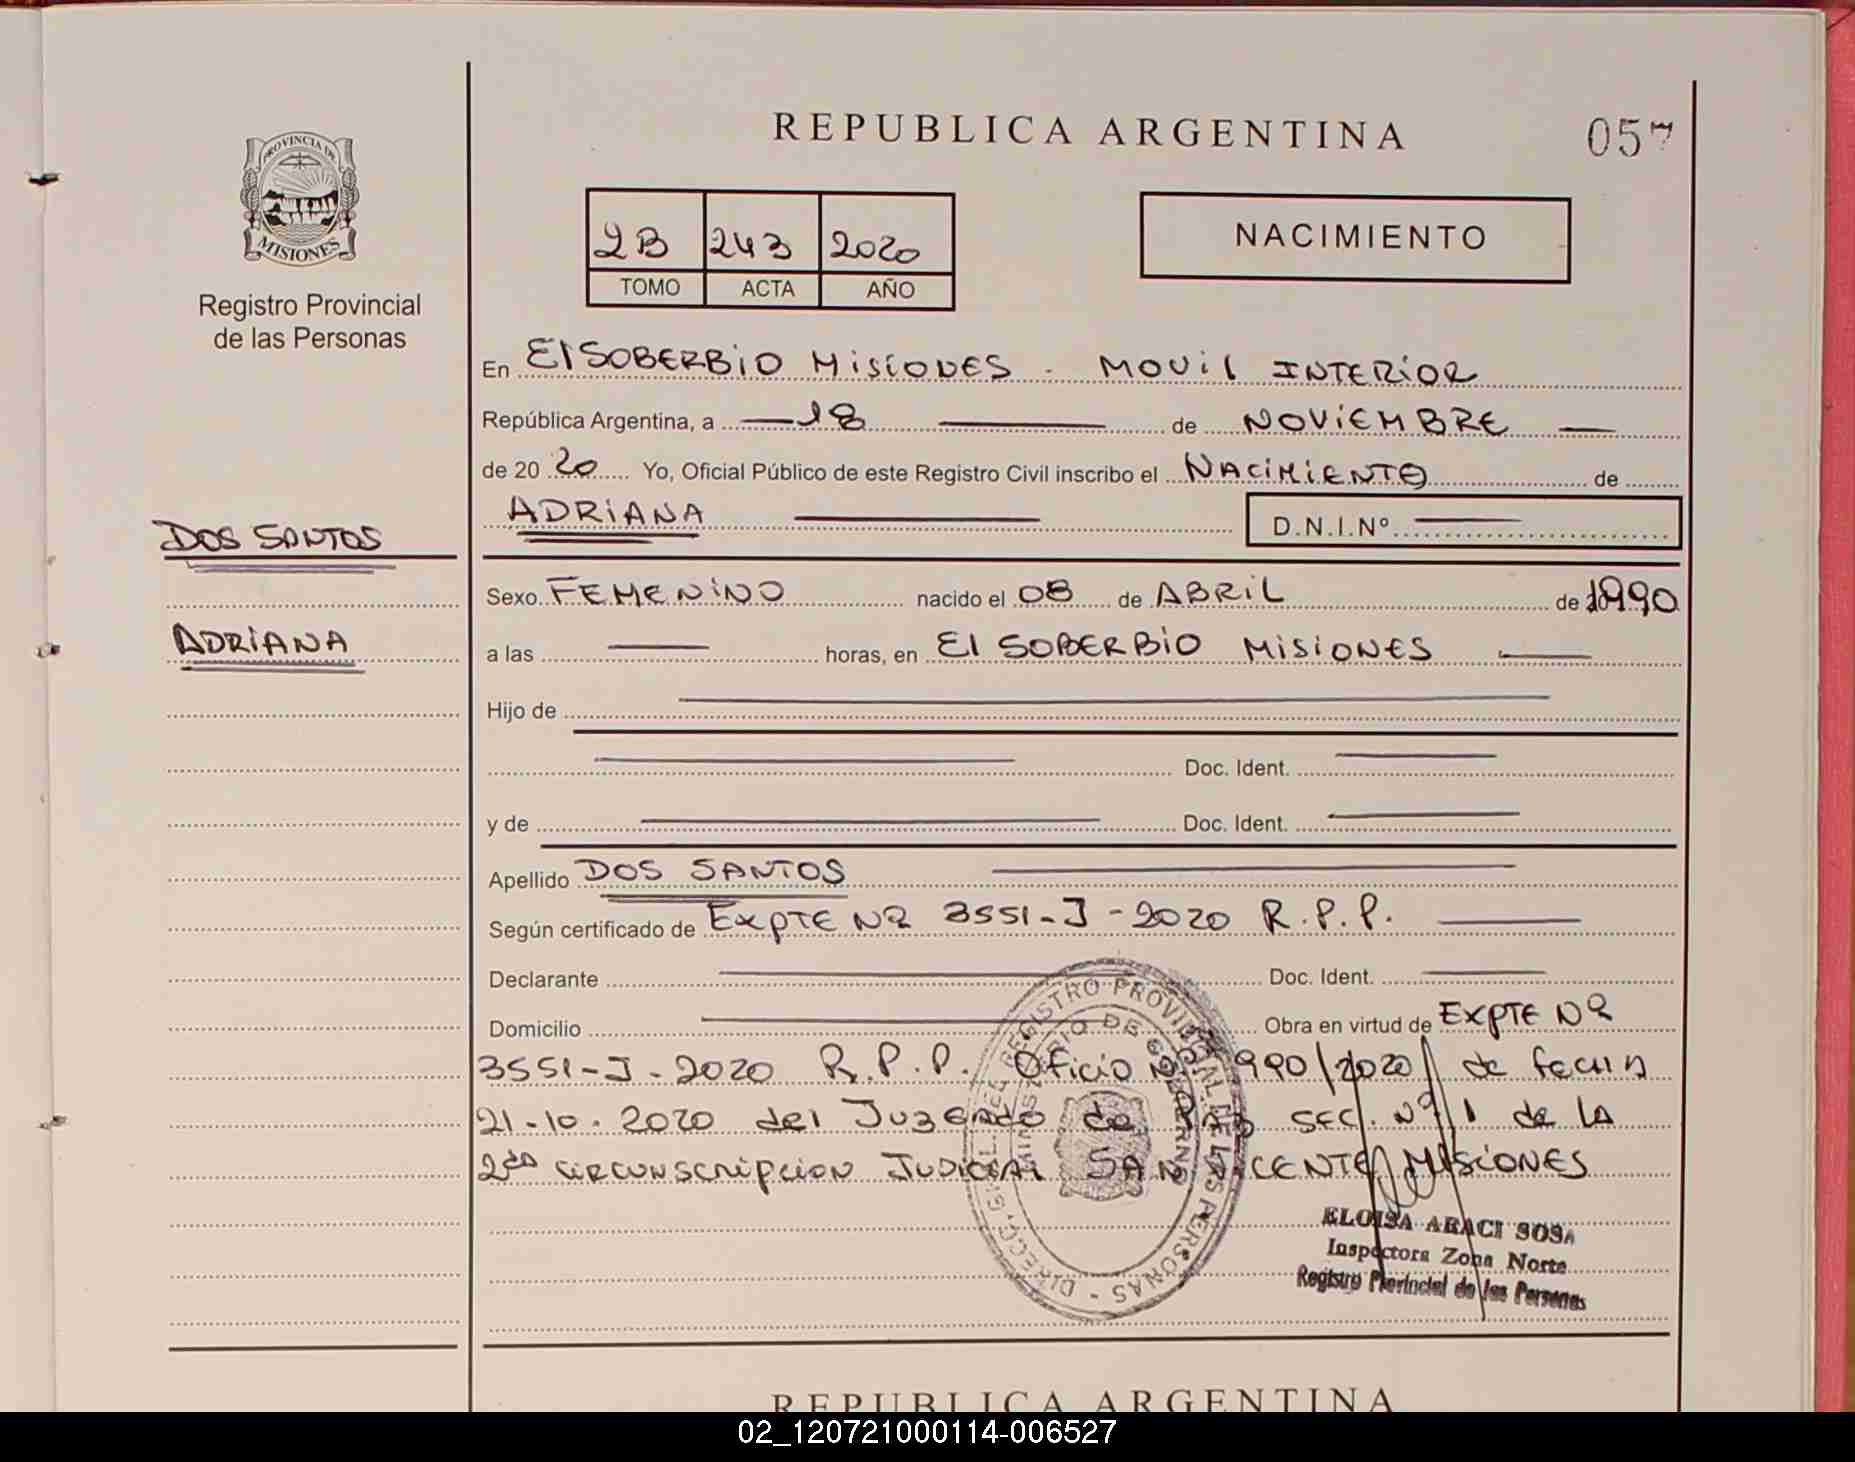 REPUBLICA ARGENTINA
057
PROVINCIA DE
MISIONES
Registro Provincial
de las Personas
2B 243 2020
TOMO ACTA AÑO
NACIMIENTO
En El SOBERBIO MISIONES. MOVIL INTERIOR
República Argentina, a — 18 — de NOVIEMBRE —
de 20 20 Yo, Oficial Público de este Registro Civil inscribo el NACIMIENTO de
ADRIANA — D.N.I.Nº —
DOS SANTOS
ADRIANA
Sexo FEMENINO nacido el 08 de ABRIL de 1990
a las — horas, en El SOBERBIO MISIONES —
Hijo de —
— Doc. Ident. —
y de — Doc. Ident. —
Apellido DOS SANTOS —
Según certificado de EXPTE Nº 3551-J-2020 R.P.P. —
Declarante — Doc. Ident. —
Domicilio — Obra en virtud de EXPTE Nº
3551-J-2020 R.P.P. Oficio Nº 990/2020/ de fecha
21-10-2020 del Juzgado de PAZ SEC. Nº 1 de la
2da circunscripcion Judicial SAN VICENTE MISIONES
DIRECC. GRAL. DEL REGISTRO PROVINCIAL DE LAS PERSONAS -
MINISTERIO DE GOBIERNO
ELOISA ARACI SOSA
Inspectora Zona Norte
Registro Provincial de las Personas
REPUBLICA ARGENTINA
02_120721000114-006527